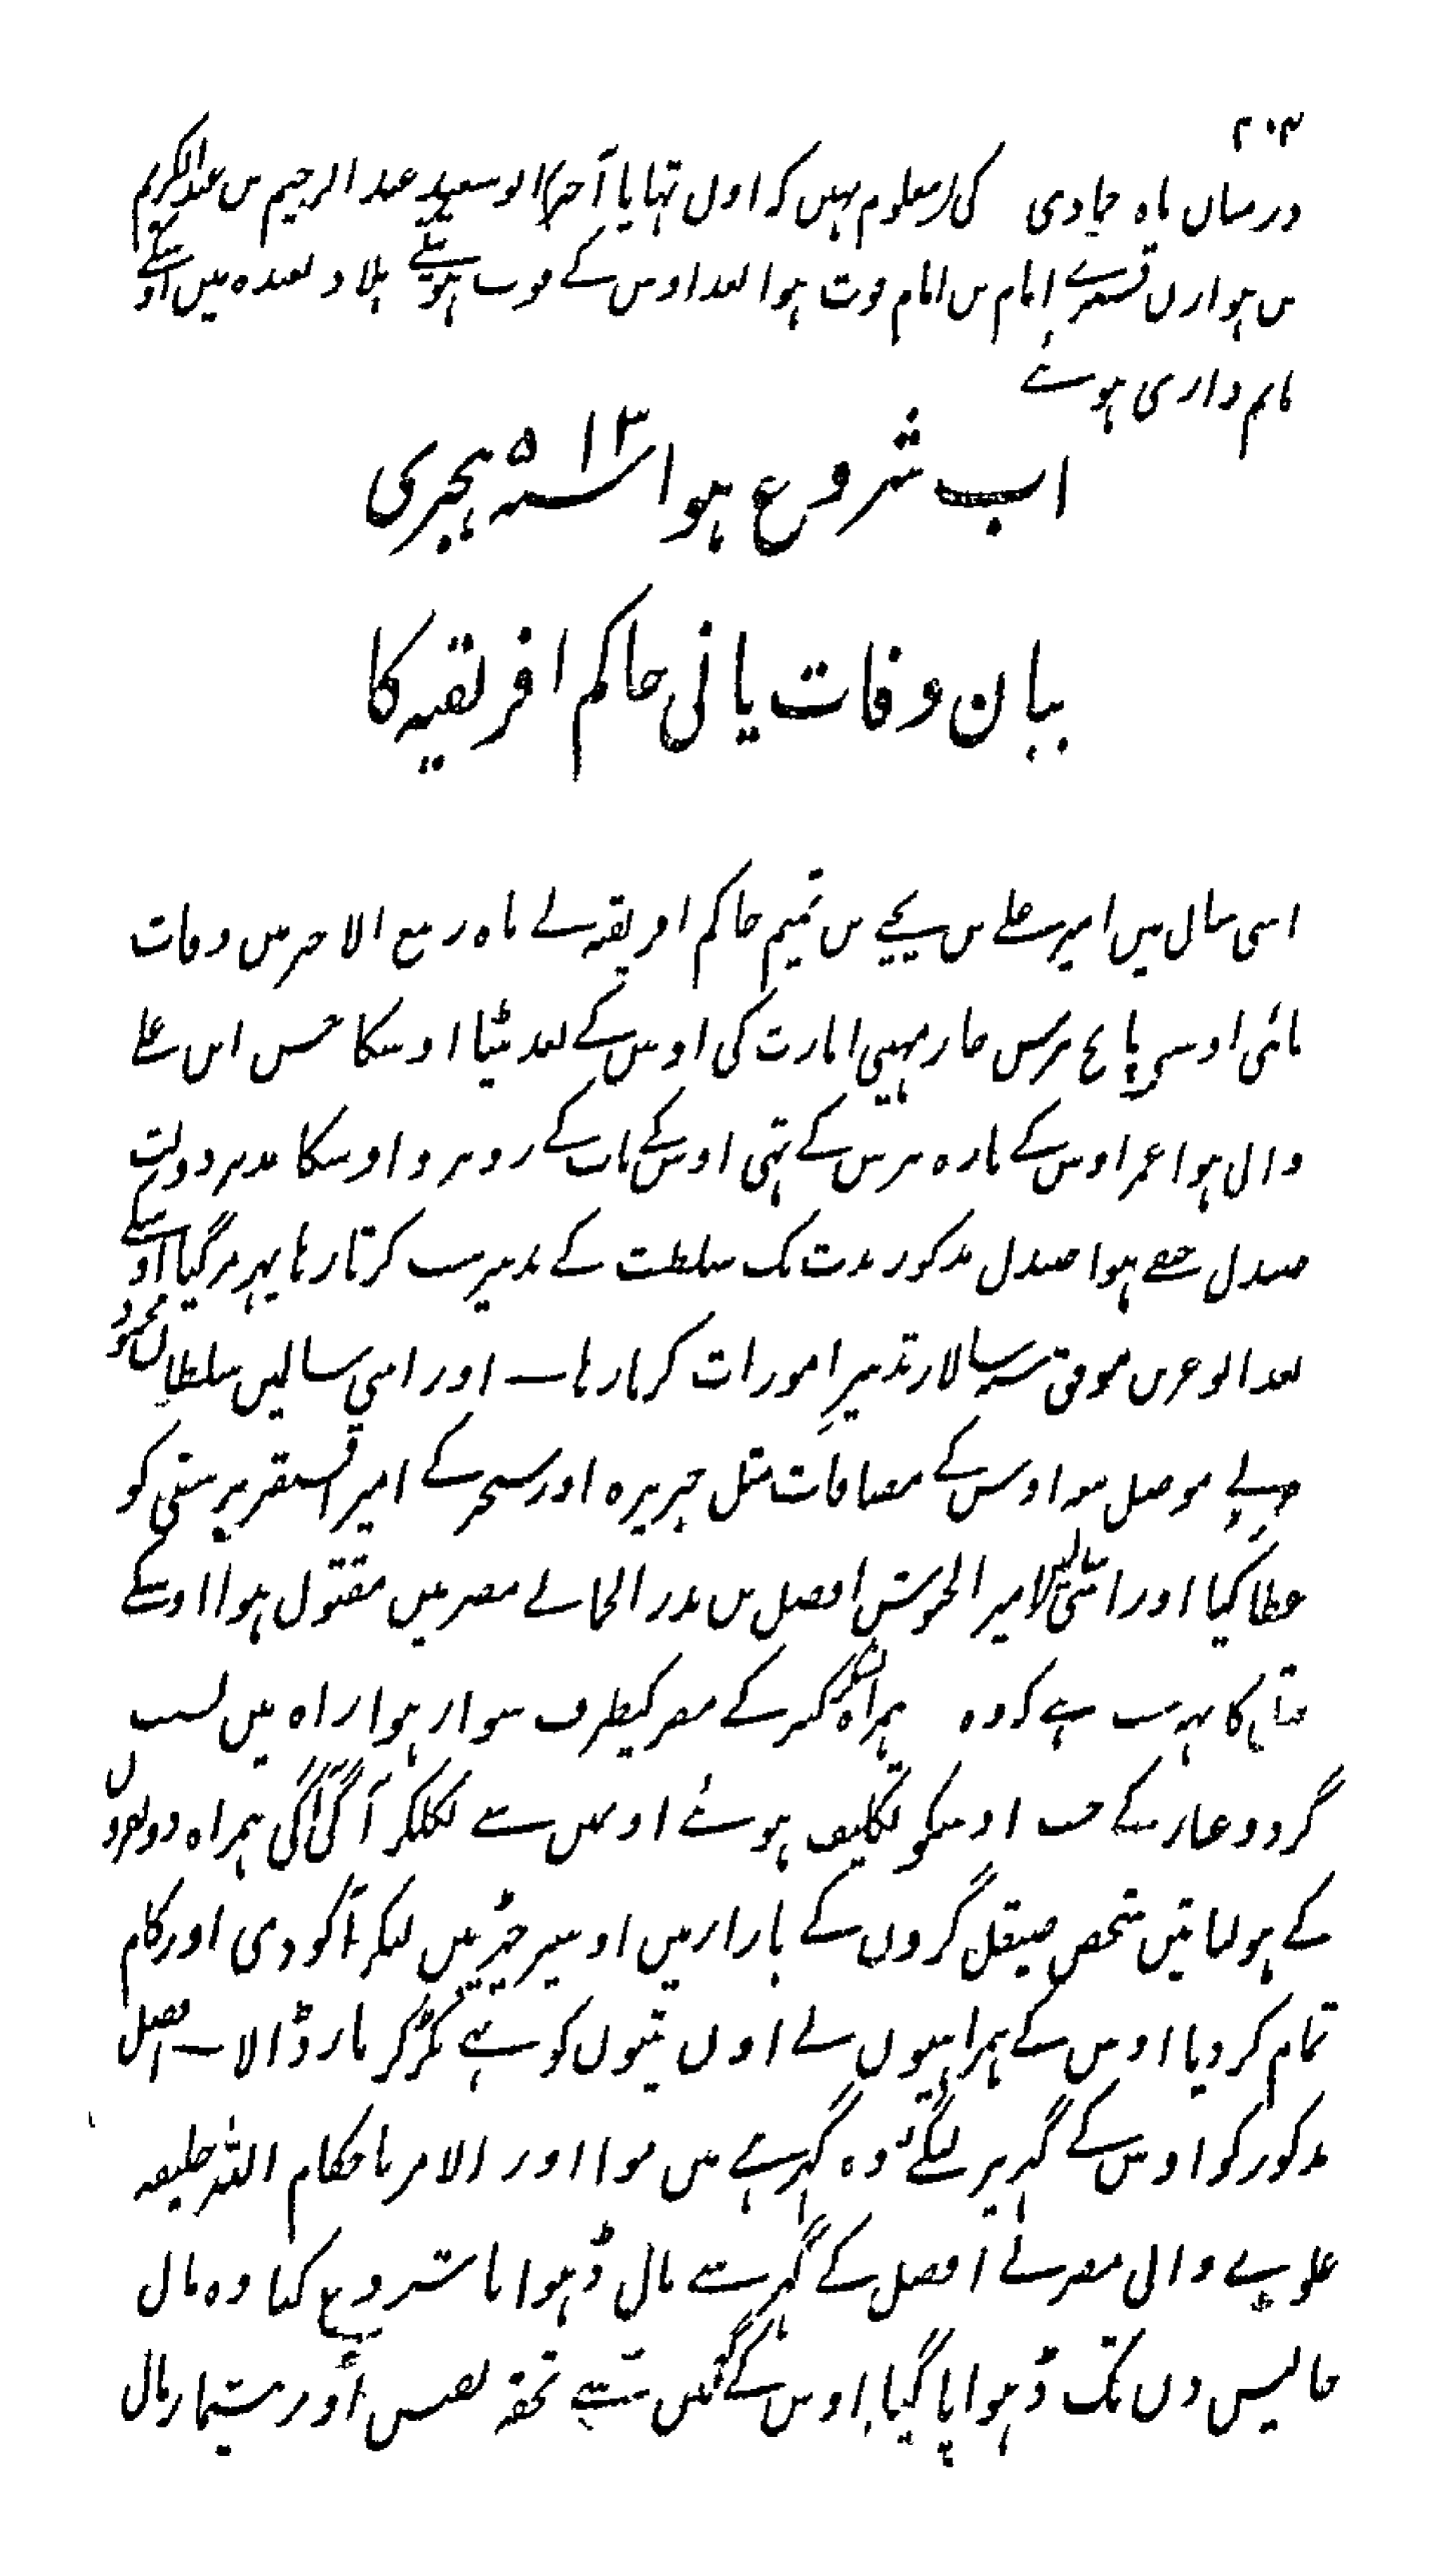 ۲۰۳
درمیان ماہ جمادی کی معلوم نہیں کہ اول تہا یا آخر ابو سعید عبد الرحیم بن عبد الکریم
بن ہوازن قشیرے امام بن امام فوت ہوا بعد اوس کے فوت ہونیکے بلاد بعیدہ میں اوسکے
ماتم داری ہوئے
اب شروع ہوا سنہ ۵۱۳ ہجری
بیان وفات پانی حاکم افریقیہ کا
اسی سال میں امیر علے بن یحیے بن تمیم حاکم افریقیہ نے ماہ ربیع الاخر میں وفات
پائی اوسی پانچ برس چار مہینی امارت کی اوس کے بعد بیٹا اوسکا حسن ابن علے
والی ہوا عمر اوس کے بارہ برس کے تہی اوس کے باپ کے روبرو اوسکا مدبر دولت
صندل خصے ہوا صندل مذکور مدت تک سلطنت کے تدبیر سب کرتا رہا پہر مرگیا اوسکے
بعد ابو عزیز موفق سپہ سالار تدبیر امورات کرتا رہا ــ اور اسی سالمیں سلطان محمود
نے موصل معہ اوس کے مضافات مثل جزیرہ اور سنجر کے امیر اقسنقر برسقی کو
عطا کیا اور اسی سالمیں امیر الجیوش افضل بن بدر الجمالے مصر میں مقتول ہوا اوسکے
قتل کا یہہ سبب ہے کہ وہ ہمراہ لشکر کے مصر کیطرف سوار ہوا راہ میں بسبب
گرد و غبار کے جب اوسکو تکلیف ہوئے اونمیں سے نکلکر آگی آگی ہمراہ دو نفروں
کے ہولیا تین شخص صیقل گروں کے بازار میں اوسپر چہڑیں لیکر آکودی اور کام
تمام کر دیا اوس کے ہمراہیوں نے اون تینوں کو بہے پکڑ کر مار ڈالا ــ افضل
مذکور کو اوس کے گہر پر لیگئے وہ گہرہے میں موا اور الامر باحکام اللہ خلیفہ
علویے والی مصر نے افضل کے گہر سے مال ڈہوانا شروع کیا وہ مال
چالیس دن تک ڈہوایا گیا اوس کے گہر میں سے تحفہ نفیس اور بیشمار مال